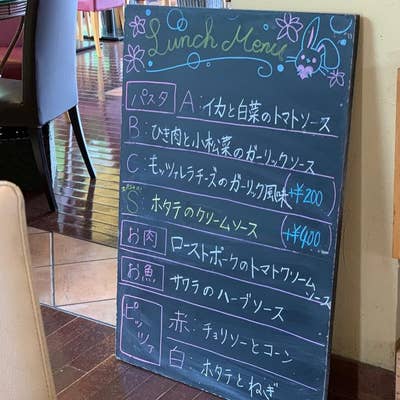 Lunch Menu
パスタ A:イカと白菜のトマトソース
B:ひき肉と小松菜のガーリックソース
C:モッツァレラチーズのガーリック風味 (+¥200)
S:ホタテのクリームソース (+¥400)
お肉 ローストポークのトマトクリームソース
お魚 サワラのハーブソース
ピッツァ 赤:チョリソーとコーン
白:ホタテとねぎ